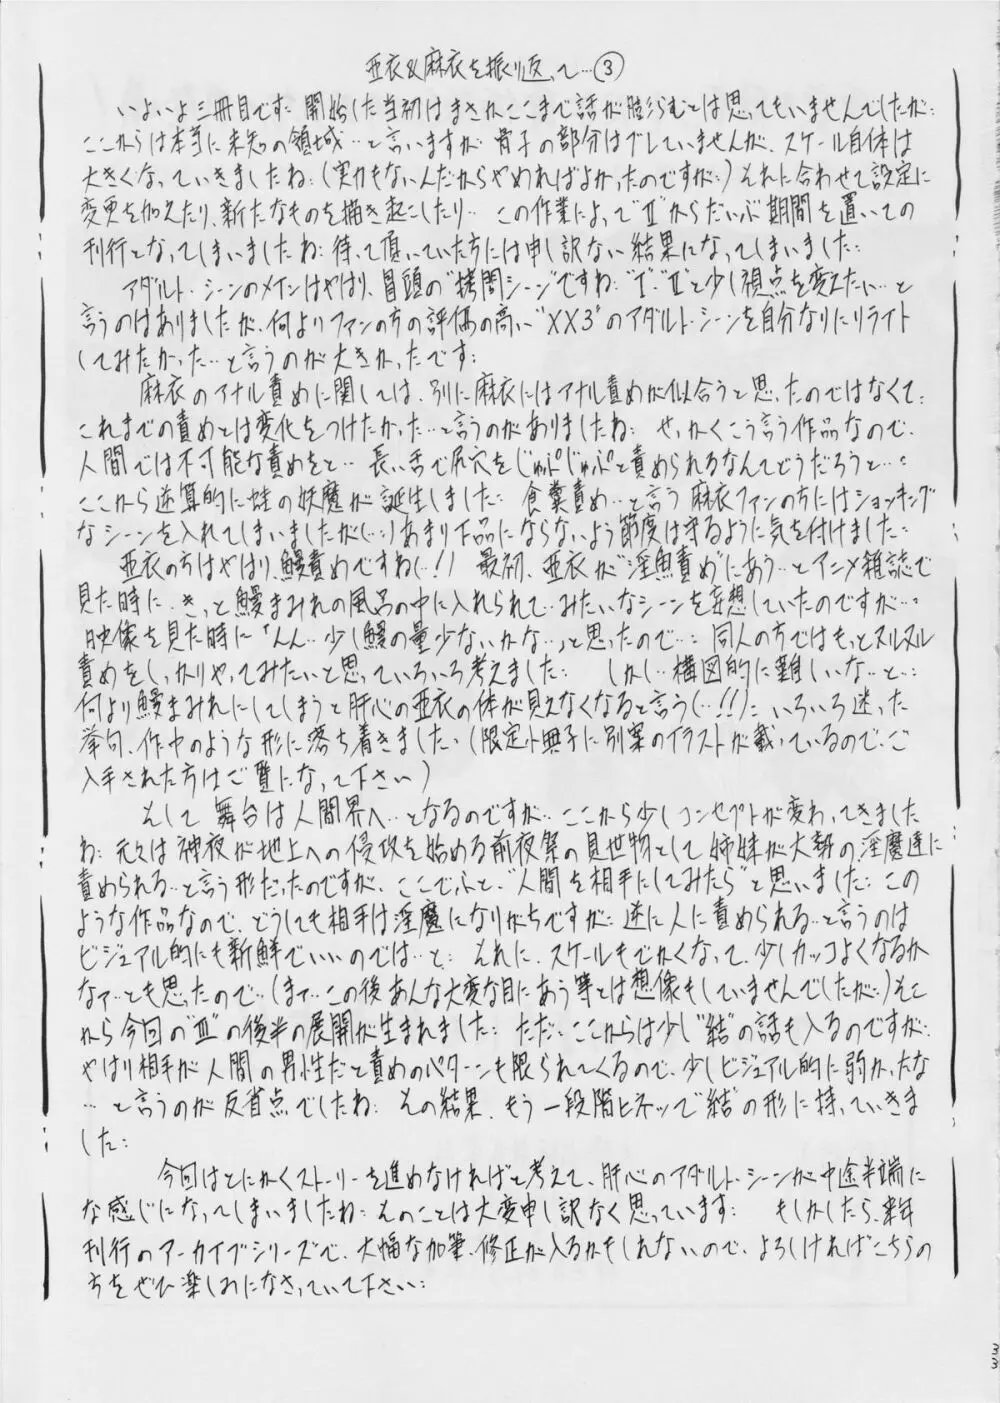 亜衣&麻衣を振り返って…③
いよいよ三冊目です 開始した当初はまさかここまで話が膨らむとは思ってもいませんでしたが…
ここからは本当に未知の領域…と言いますが 骨子の部分はブレていませんが、スケール自体は
大きくなっていきましたね…(実力もないんだからやめればよかったのですが…)それに合わせて設定に
変更を加えたり、新たなものを描き起こしたり… この作業によって"Ⅱ"からだいぶ期間を置いての
刊行となってしまいましたね…待って頂いていた方には申し訳ない結果になってしまいました…
アダルト・シーンのメインはやはり、冒頭の"拷問シーン"ですね…"Ⅰ"、"Ⅱ"と少し視点を変えたい…と
言うのはありましたが、何よりファンの方の評価の高い"XX3"のアダルト・シーンを自分なりにリライト
してみたかった…と言うのが大きかったです…
麻衣のアナル責めに関しては、別に麻衣にはアナル責めが似合うと思ったのではなくて…
これまでの責めとは変化をつけたかった…と言うのがありましたね… せっかくこう言う作品なので、
人間では不可能な責めをと… 長い舌で尻穴をじゅぷじゅぷと責められるなんてどうだろうと…
ここから逆算的に蛙の妖魔が誕生しました… 食糞責め…と言う麻衣ファンの方にはショッキング
なシーンを入れてしまいましたが(…)あまり下品にならないよう節度は守るように気を付けました…
亜衣の方はやはり、鰻責めですね(…!!) 最初、亜衣が"淫魚責め"にあう…とアニメ雑誌で
見た時に、きっと鰻まみれの風呂の中に入れられて…みたいなシーンを妄想していたのですが…
映像を見た時に「んん…少し鰻の量少ないかな…」と思ったので… 同人の方ではもっとヌルヌル
責めをしっかりやってみたいと思っていろいろ考えました… しかし…構図的に難しいな…と…
何より鰻まみれにしてしまうと肝心の亜衣の体が見えなくなると言う(…!!)… いろいろ迷った
挙句、作中のような形に落ち着きました、(限定小冊子に別案のイラストが載っているので、ご
入手された方はご覧になって下さい)
そして 舞台は人間界へ…となるのですが…ここから少しコンセプトが変わってきました
ね… 元々は神夜が地上への侵攻を始める前夜祭の見世物として 姉妹が大勢の淫魔達に
責められる…と言う形だったのですが、ここでふと、"人間を相手にしてみたら"と思いました… この
ような作品なので、どうしても相手は淫魔になりがちですが… 逆に人に責められる…と言うのは
ビジュアル的にも新鮮でいいのでは…と… それに、スケールもでかくなって、少しカッコよくなるか
なァ…とも思ったので…(まァ…この後あんな大変な目にあう等とは想像もしていませんでしたが…)そこ
から今回の"Ⅲ"の後半の展開が生まれました… ただ…ここからは少し"結"の話も入るのですが…
やはり相手が人間の男性だと責めのパターンも限られてくるので、少しビジュアル的に弱かったな
…と言うのが反省点でしたね… その結果、もう一段階ヒネって"結"の形に持っていきま
した…
今回はとにかくストーリーを進めなければと考えて、肝心のアダルト・シーンが中途半端に
な感じになってしまいましたね… そのことは大変申し訳なく思っています… もしかしたら、来年
刊行のアーカイブシリーズで、大幅な加筆、修正が入るかもしれないので、よろしければこちらの
方をぜひ楽しみになさっていて下さい…
33